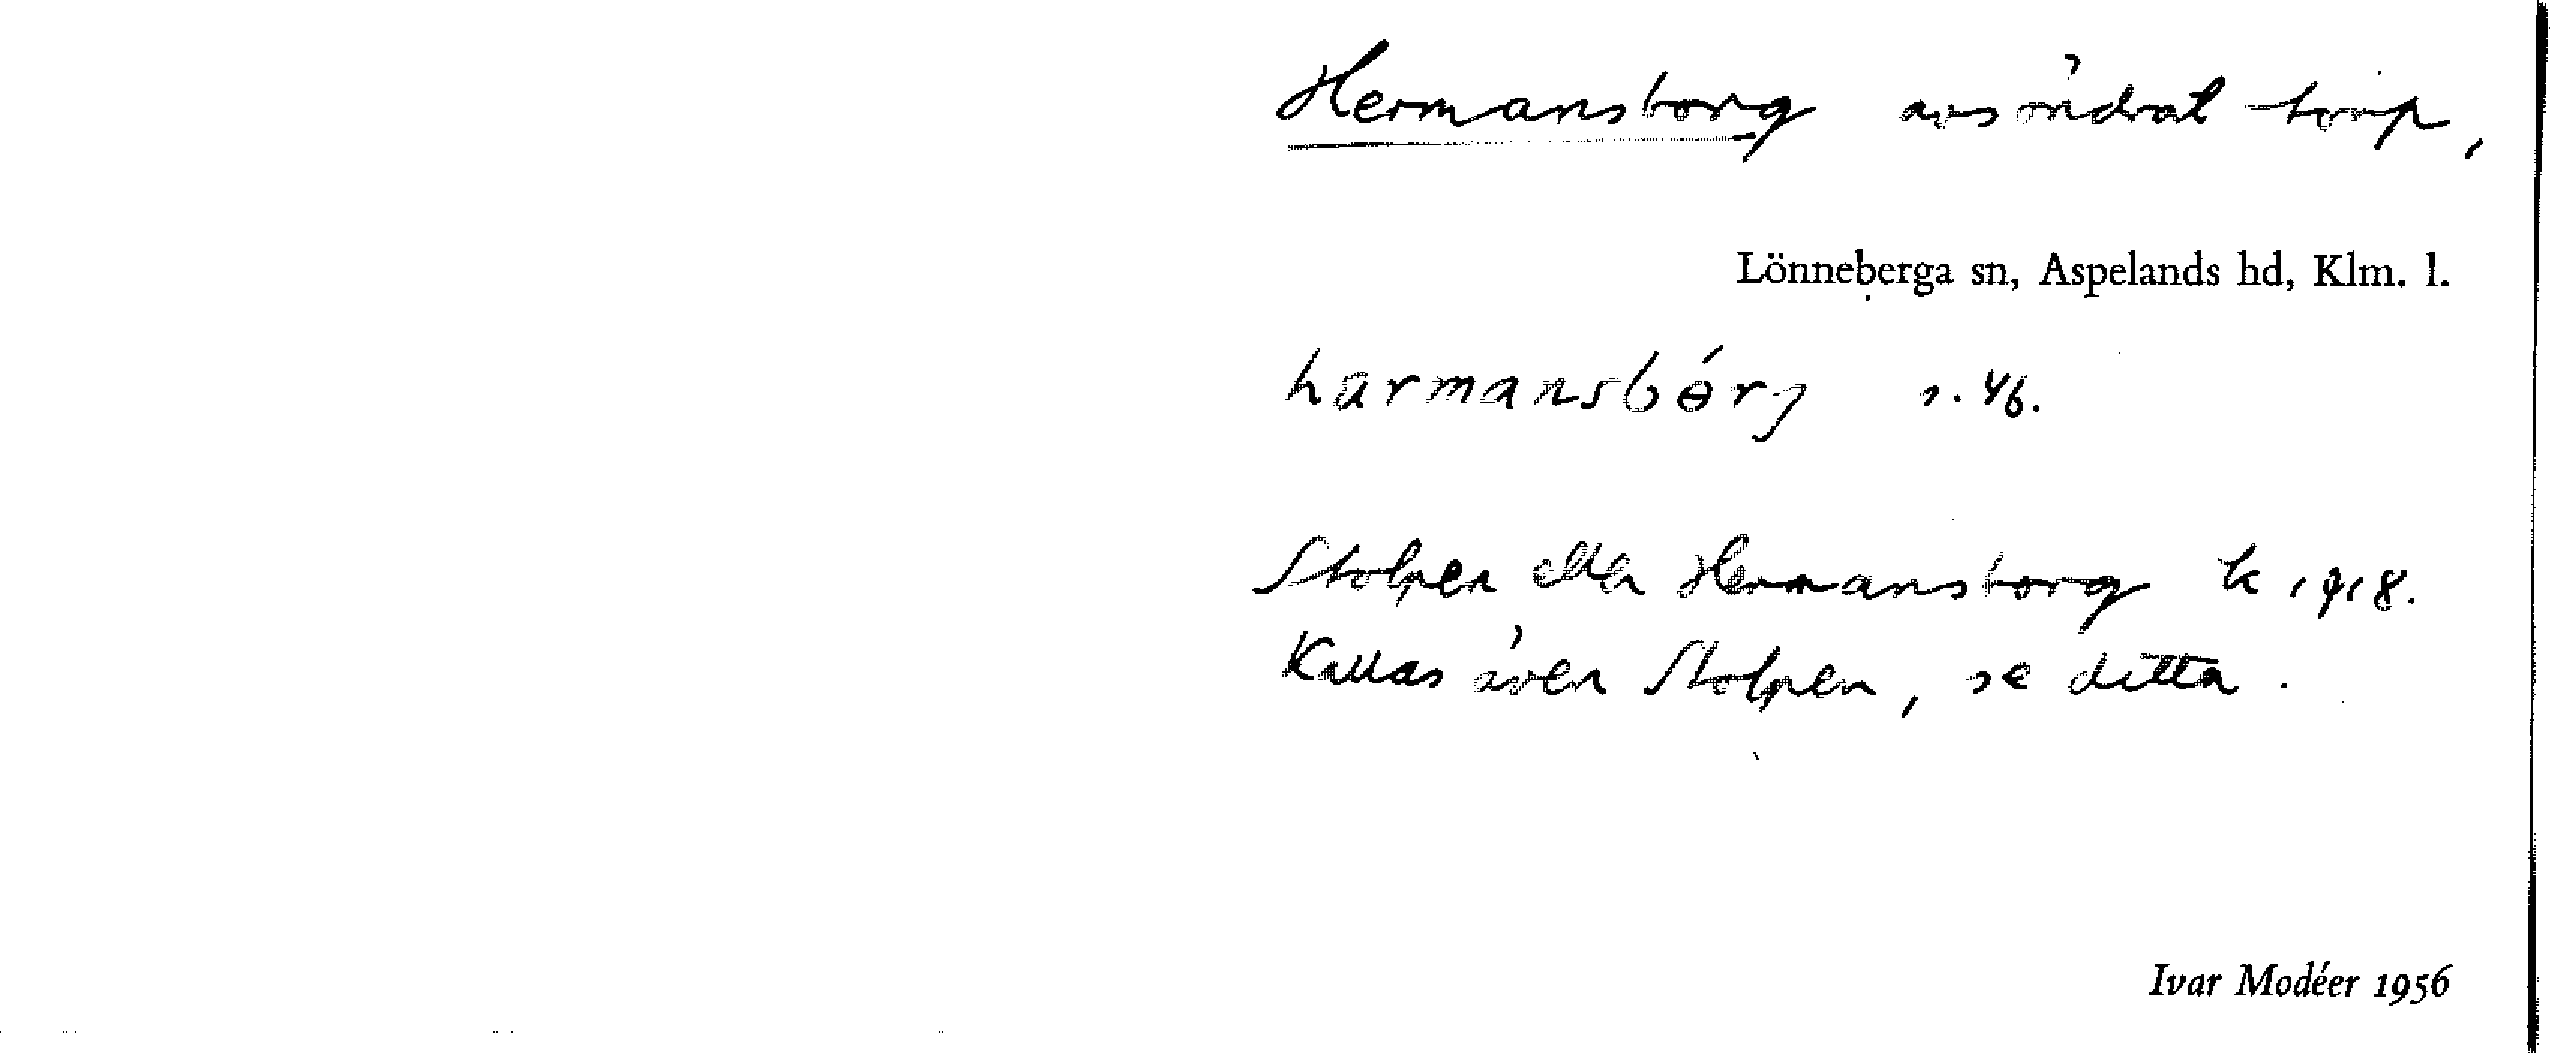 Hermansborg avsöndrat torp,
Lönneberga sn, Aspelands hd, Klm. l.
harmansbórj s. 46.
Stolpen eller Hermansborg k 1918.
Kallas även Stolpen, se detta.
Ivar Modéer 1956